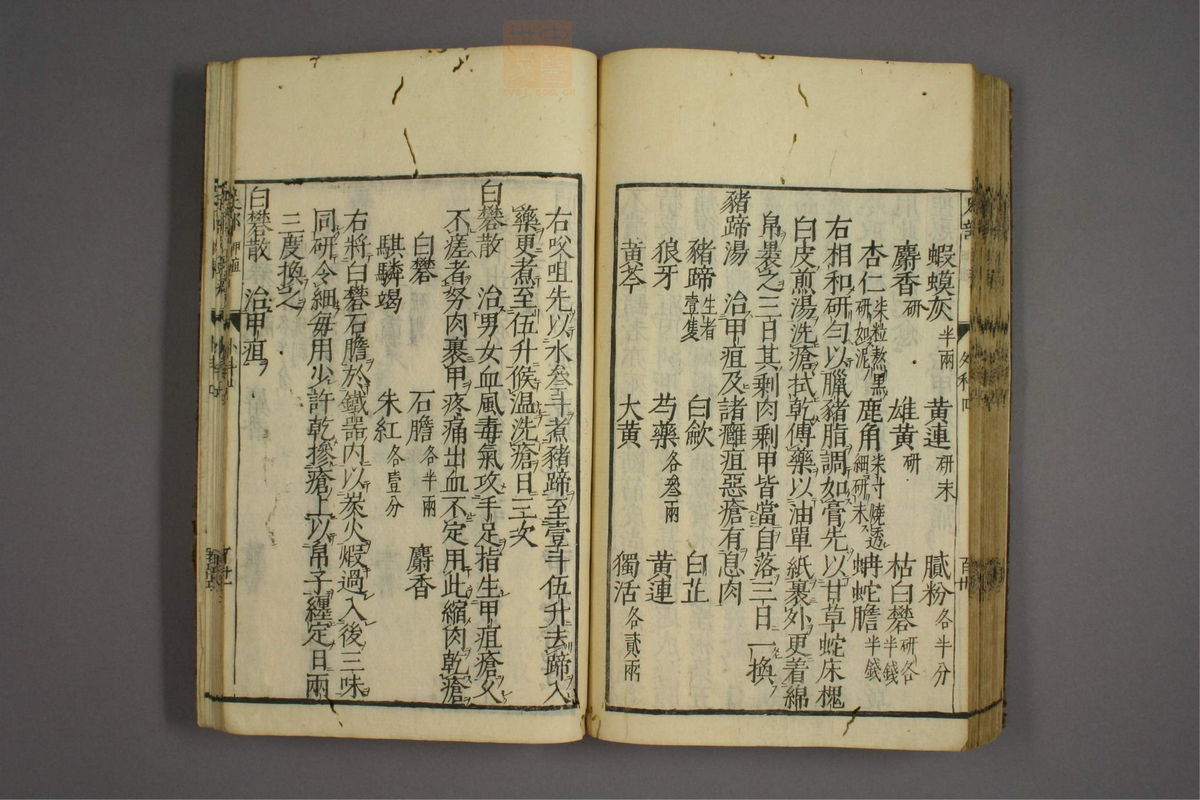 蝦蟆灰半兩 黃連研末 膩粉各半分
麝香研 雄黃研 枯白礬研各半錢
杏仁柒粒熬黑研如泥 鹿角柒寸燒透細研末 蚺蛇膽半錢
右相和研勻以臘豬脂調如膏先以甘草蛇床槐
白皮煎湯洗瘡拭乾傅藥以油單紙裹外更着綿
帛裹之三日其剩肉剩甲皆當自落三日一換
豬蹄湯 治甲疽及諸癰疽惡瘡有息肉
豬蹄生者壹隻 白歛 白芷
狼牙 芍藥各叄兩 黃連
黃芩 大黃 獨活各貳兩
右㕮咀先以水叄斗煮豬蹄至壹斗伍升去蹄入
藥更煮至伍升候温洗瘡日三次
白礬散 治男女血風毒氣攻手足指生甲疽瘡久
不瘥者努肉裹甲疼痛出血不定用此縮肉乾瘡
白礬 石膽各半兩 麝香
騏驎竭 朱紅各壹分
右將白礬石膽於鐵器內以炭火煅過入後三味
同研令細每用少許乾摻瘡上以帛子纏定日兩
三度換之
白礬散 治甲疽